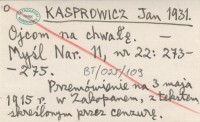 KASPROWICZ Jan 1931.
Ojcom na chwałę. —
Myśl Nar. 11, nr 22: 273-
-275.
BT/025/109
Przemówienie na 3 maja
1915 r. w Zakopanem, z tekstem
skreślonym przez cenzurę.